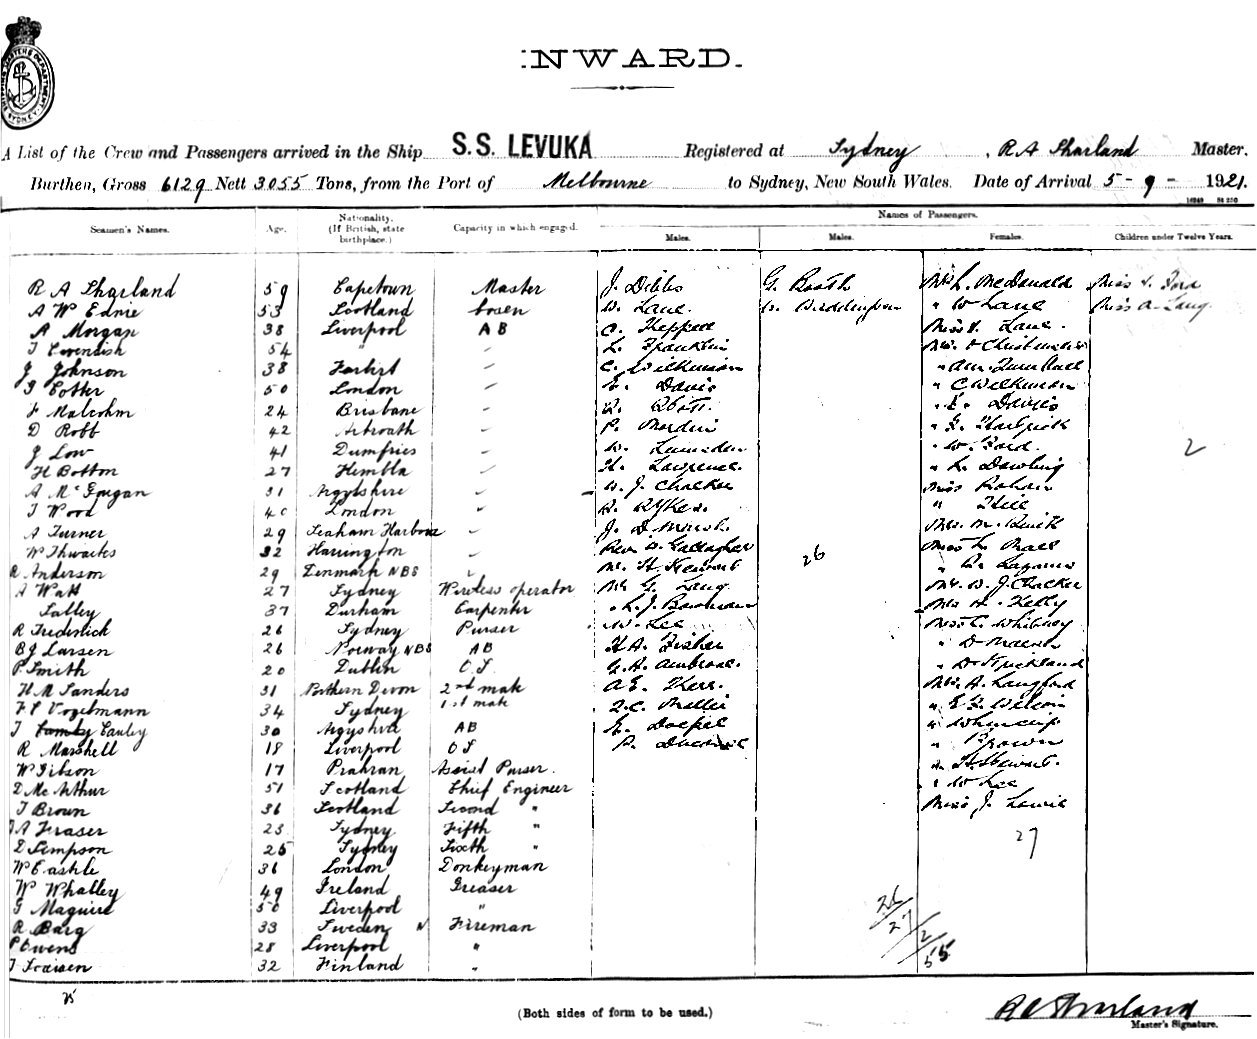 SHIPPING MASTERS DEPARTMENT
SYDNEY
INWARD.
A List of the Crew and Passengers arrived in the Ship S.S. LEVUKA Registered at Sydney , R A Sharland Master.
Burthen, Gross 6129 Nett 3055 Tons, from the Port of Melbourne to Sydney, New South Wales. Date of Arrival 5 - 9 - 1921.
Names of Passengers.
Seamen's Names. Age. Nationality. (If British, state birthplace.) Capacity in which engaged. Males. Males. Females. Children under Twelve Years.
R A Sharland 59 Capetown Master J. Dibbs G. Booth Mrs L. McDonald Miss Ford
A W Ednie 53 Scotland bosen W. Lane. W. Biddington " W Lane Miss A. Lang
A Morgan 38 Liverpool A B C. Heppell Miss V. Lane.
T Cavendish 54 " L. Franklin Mrs.
J Johnson 38 C. Wilkinson
Cotter 50 London E. Davis " C Wilkinson
F Malcolm 24 Brisbane R. Abott. " E. Davies
D Robb 42 Arbroath P. "
J Low 41 Dumfries W. Lumsden " W. Ford. 2
H Botton 27 Kembla H. Lawrence. " L. Dowling
A McGougan 31 Argylshire W. J. Chacker Miss
T Wood 40 London R. Rykes. "
A Turner 29 Seaham Harbour J. D Marsh. Mrs. M. Smith
W Thwaites 32 Harrington Rev. W. Gallagher Miss L.
R Anderson 29 Denmark NBS Mr. H. Stewart 26 "
A Watt 27 Sydney Wireless operator Mr G. Lang Mr. W. J. Chacker
Talley 37 Durham Carpenter " L. J. Bowman Mrs H. Kelly
R Frederick 26 Sydney Purser W. Lee Miss C. Whitney
B J Larsen 26 Norway NBS AB H A. Fisher " D
P Smith 20 Dublin O S G. A. Ambrose. " D. Strickland
H M Sanders 31 Northern Devon 2nd mate A E. Kerr. Mrs. A. Langford
F S Vogelmann 34 Sydney 1st mate
T Cauley 30 AB E. Doepel "
R Marshell 18 Liverpool O S P. " Brown
W Gibson 17 Prahran Assist Purser. " H. Stewart.
D McArthur 51 Scotland Chief Engineer " W Lee
T Brown 36 Scotland Second " Miss J. Lawie
J A Fraser 23 Sydney Fifth "
D Simpson 25 Sydney Sixth " 27
W Eashle 36 London Donkeyman
W Whalley 49 Ireland Greaser
G Maguire 50 Liverpool "
R Barg 33 Sweden N Fireman
P Owens 28 Liverpool "
T 32 Finland "
26/27/2/55
35
(Both sides of form to be used.)
R A Sharland
Master's Signature.